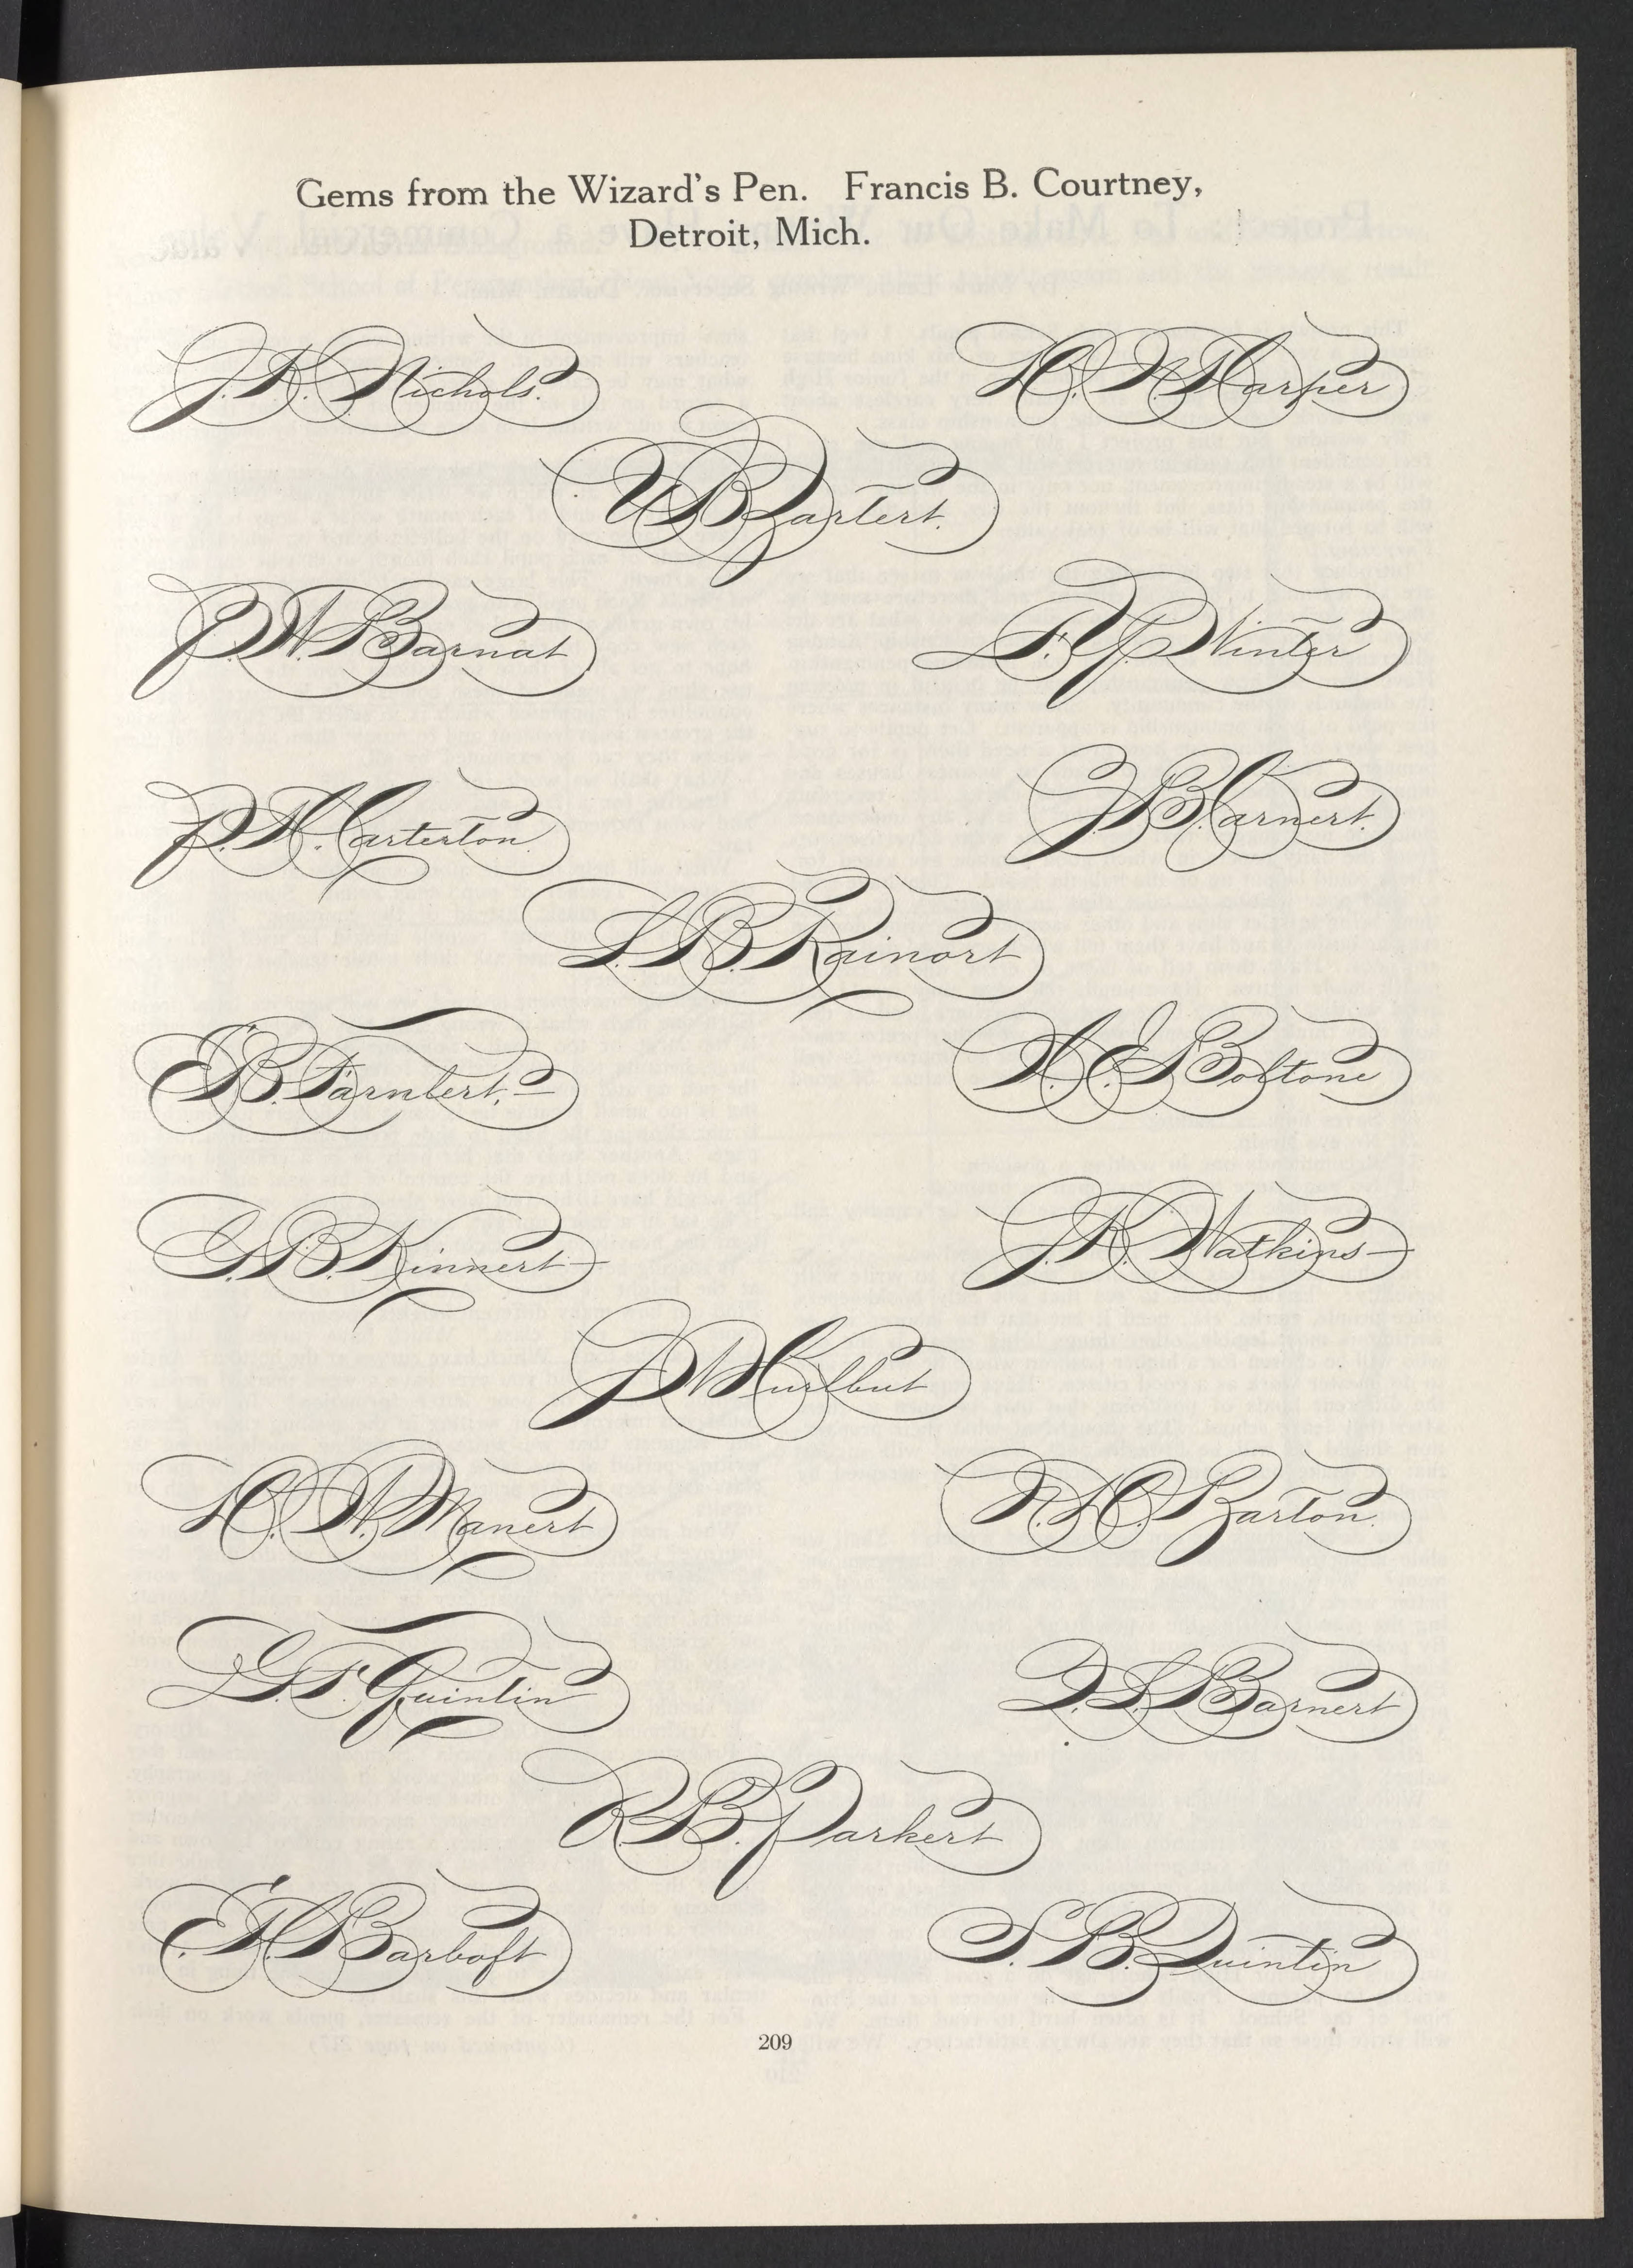 Gems from the Wizard's Pen. Francis B. Courtney,
Detroit, Mich.
J. K. Nichols.
H. N. Harper
V. B. Zartert.
P. W. Barnat
F. Y. Winter
P. H. Carterton.
J. B. Carnert.
L. B. Rainort
E. B. Farnlert.
A. E. Boltone
G. B. Kinnert
J. K. Watkins
J. W. Hurlbut
H. W. Manert
N. H. Zarton.
G. F. Quintin
D. L. Barnert
R. B. Parkert
E. H. Barboft
S. B. Quintin
209